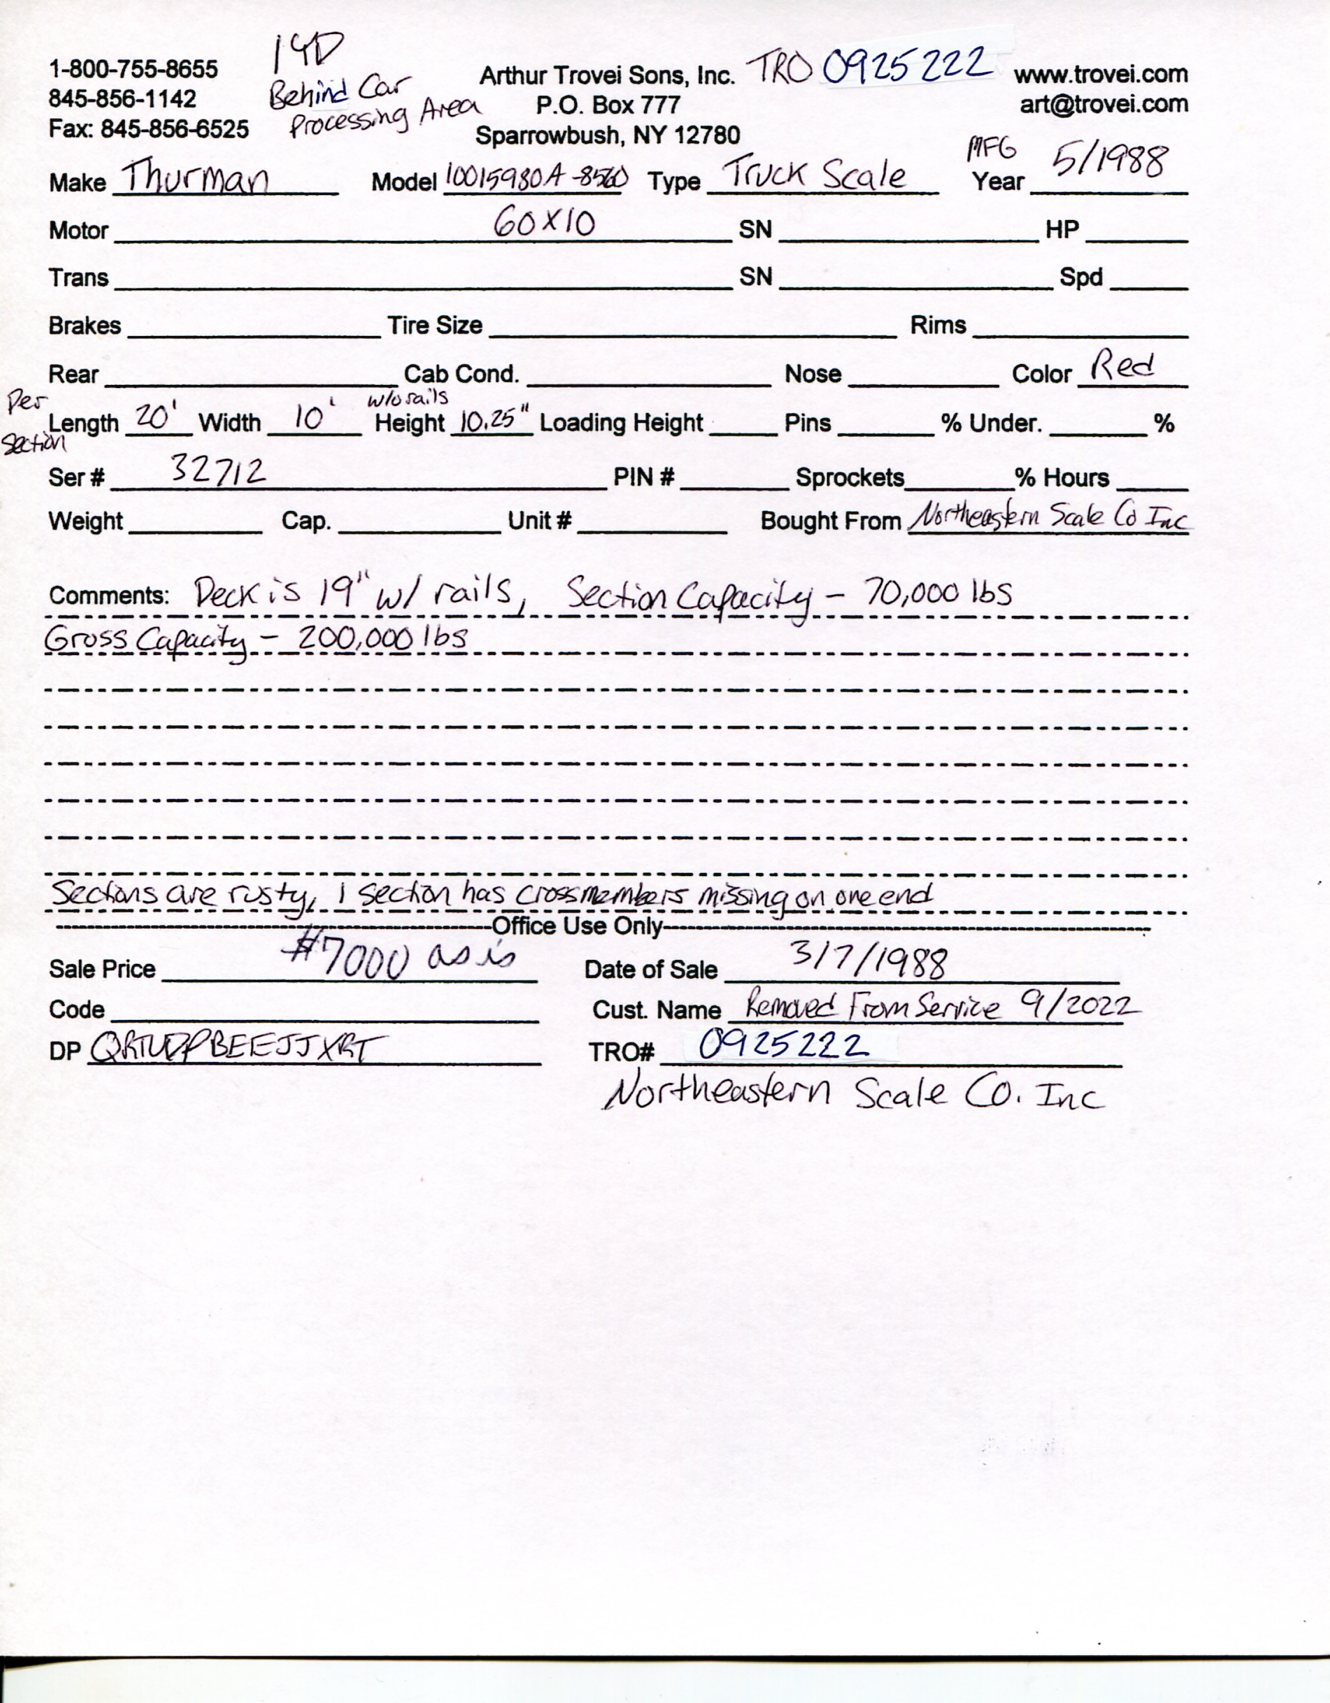 1-800-755-8655 14D Arthur Trovei Sons, Inc. TRO 0925222 www.trovei.com
845-856-1142 Behind Car P.O. Box 777 art@trovei.com
Fax: 845-856-6525 Processing Area Sparrowbush, NY 12780
Make Thurman Model 10015980A-8560 Type Truck Scale MFG Year 5/1988
Motor 60x10 SN HP
Trans SN Spd
Brakes Tire Size Rims
Rear Cab Cond. Nose Color Red
Per Section Length 20' Width 10' w/o rails Height 10.25" Loading Height Pins % Under. %
Ser # 32712 PIN # Sprockets % Hours
Weight Cap. Unit # Bought From Northeastern Scale Co Inc
Comments: Deck is 19" w/ rails, Section Capacity - 70,000 lbs
Gross Capacity - 200,000 lbs
Sections are rusty, 1 section has crossmembers missing on one end
Office Use Only
Sale Price #7000 as is Date of Sale 3/7/1988
Code Cust. Name Removed From Service 9/2022
DP TRO# 0925222
Northeastern Scale Co. Inc